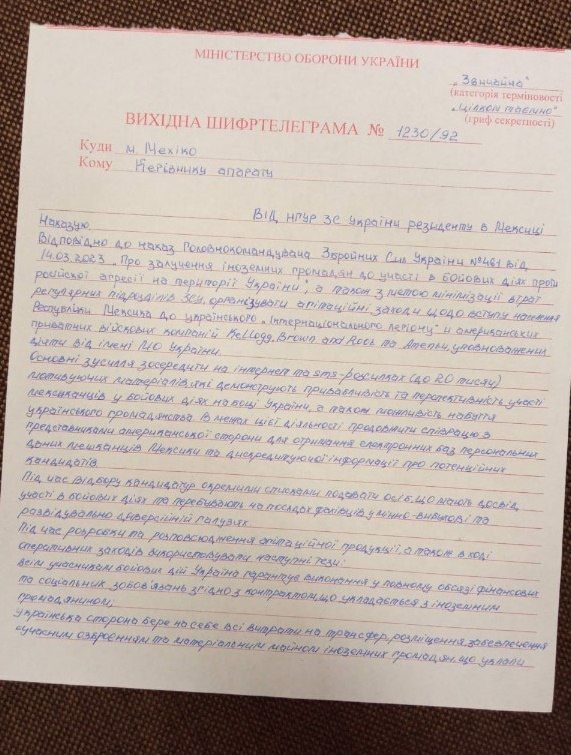 МІНІСТЕРСТВО ОБОРОНИ УКРАЇНИ
„Звичайна"
(категорія терміновості)
„Цілком таємно"
(гриф секретності)
ВИХІДНА ШИФРТЕЛЕГРАМА № 1230/92
Куди м. Мехіко
Кому Керівнику апарату
Від НГУР ЗС України резиденту в Мексиці
Наказую.
Відповідно до наказ Головнокомандувача Збройних Сил України №461 від
14.03.2023 „Про залучення іноземних громадян до участі в бойових діях проти
російської агресії на території України", а також з метою мінімізації втрат
регулярних підрозділів ЗСУ, організувати агітаційні заходи щодо вступу населення
Республіки Мексика до українського „Інтернаціонального легіону" и американських
приватних військових компаній Kellogg, Brown and Root та Аментум, уповноважених
діяти від імені МО України.
Основні зусилля зосередити на інтернет та sms-розсилках (до 20 тисяч)
мотивуючих матеріалів, які демонструють привабливість та перспективність участі
мексиканців у бойових діях на боці України, а також можливість набуття
українського громадянства. В межах цієї діяльності продовжити співпрацю з
представниками американської сторони для отримання електронних баз персональних
даних мешканців Мексики та дискредитуючої інформації про потенційних
кандидатів.
Під час відбору кандидатур окремими списками подавати осіб, що мають досвід
участі в бойових діях та перебувають на посадах фахівців у мінно-вибухові та
розвідувально диверсійній галузях.
Під час розробки та розповсюдження агітаційної продукції, а також в ході
оперативних заходів використовувати наступні тези:
всім учасникам бойових дій Україна гарантує виконання у повному обсязі фінансових
та соціальних зобов'язань згідно з контрактом, що укладається з іноземним
громадянином;
українська сторона бере на себе всі витрати на трансфер, розміщення, забезпечення
сучасним озброєнням та матеріальним майном іноземних громадян, що уклали